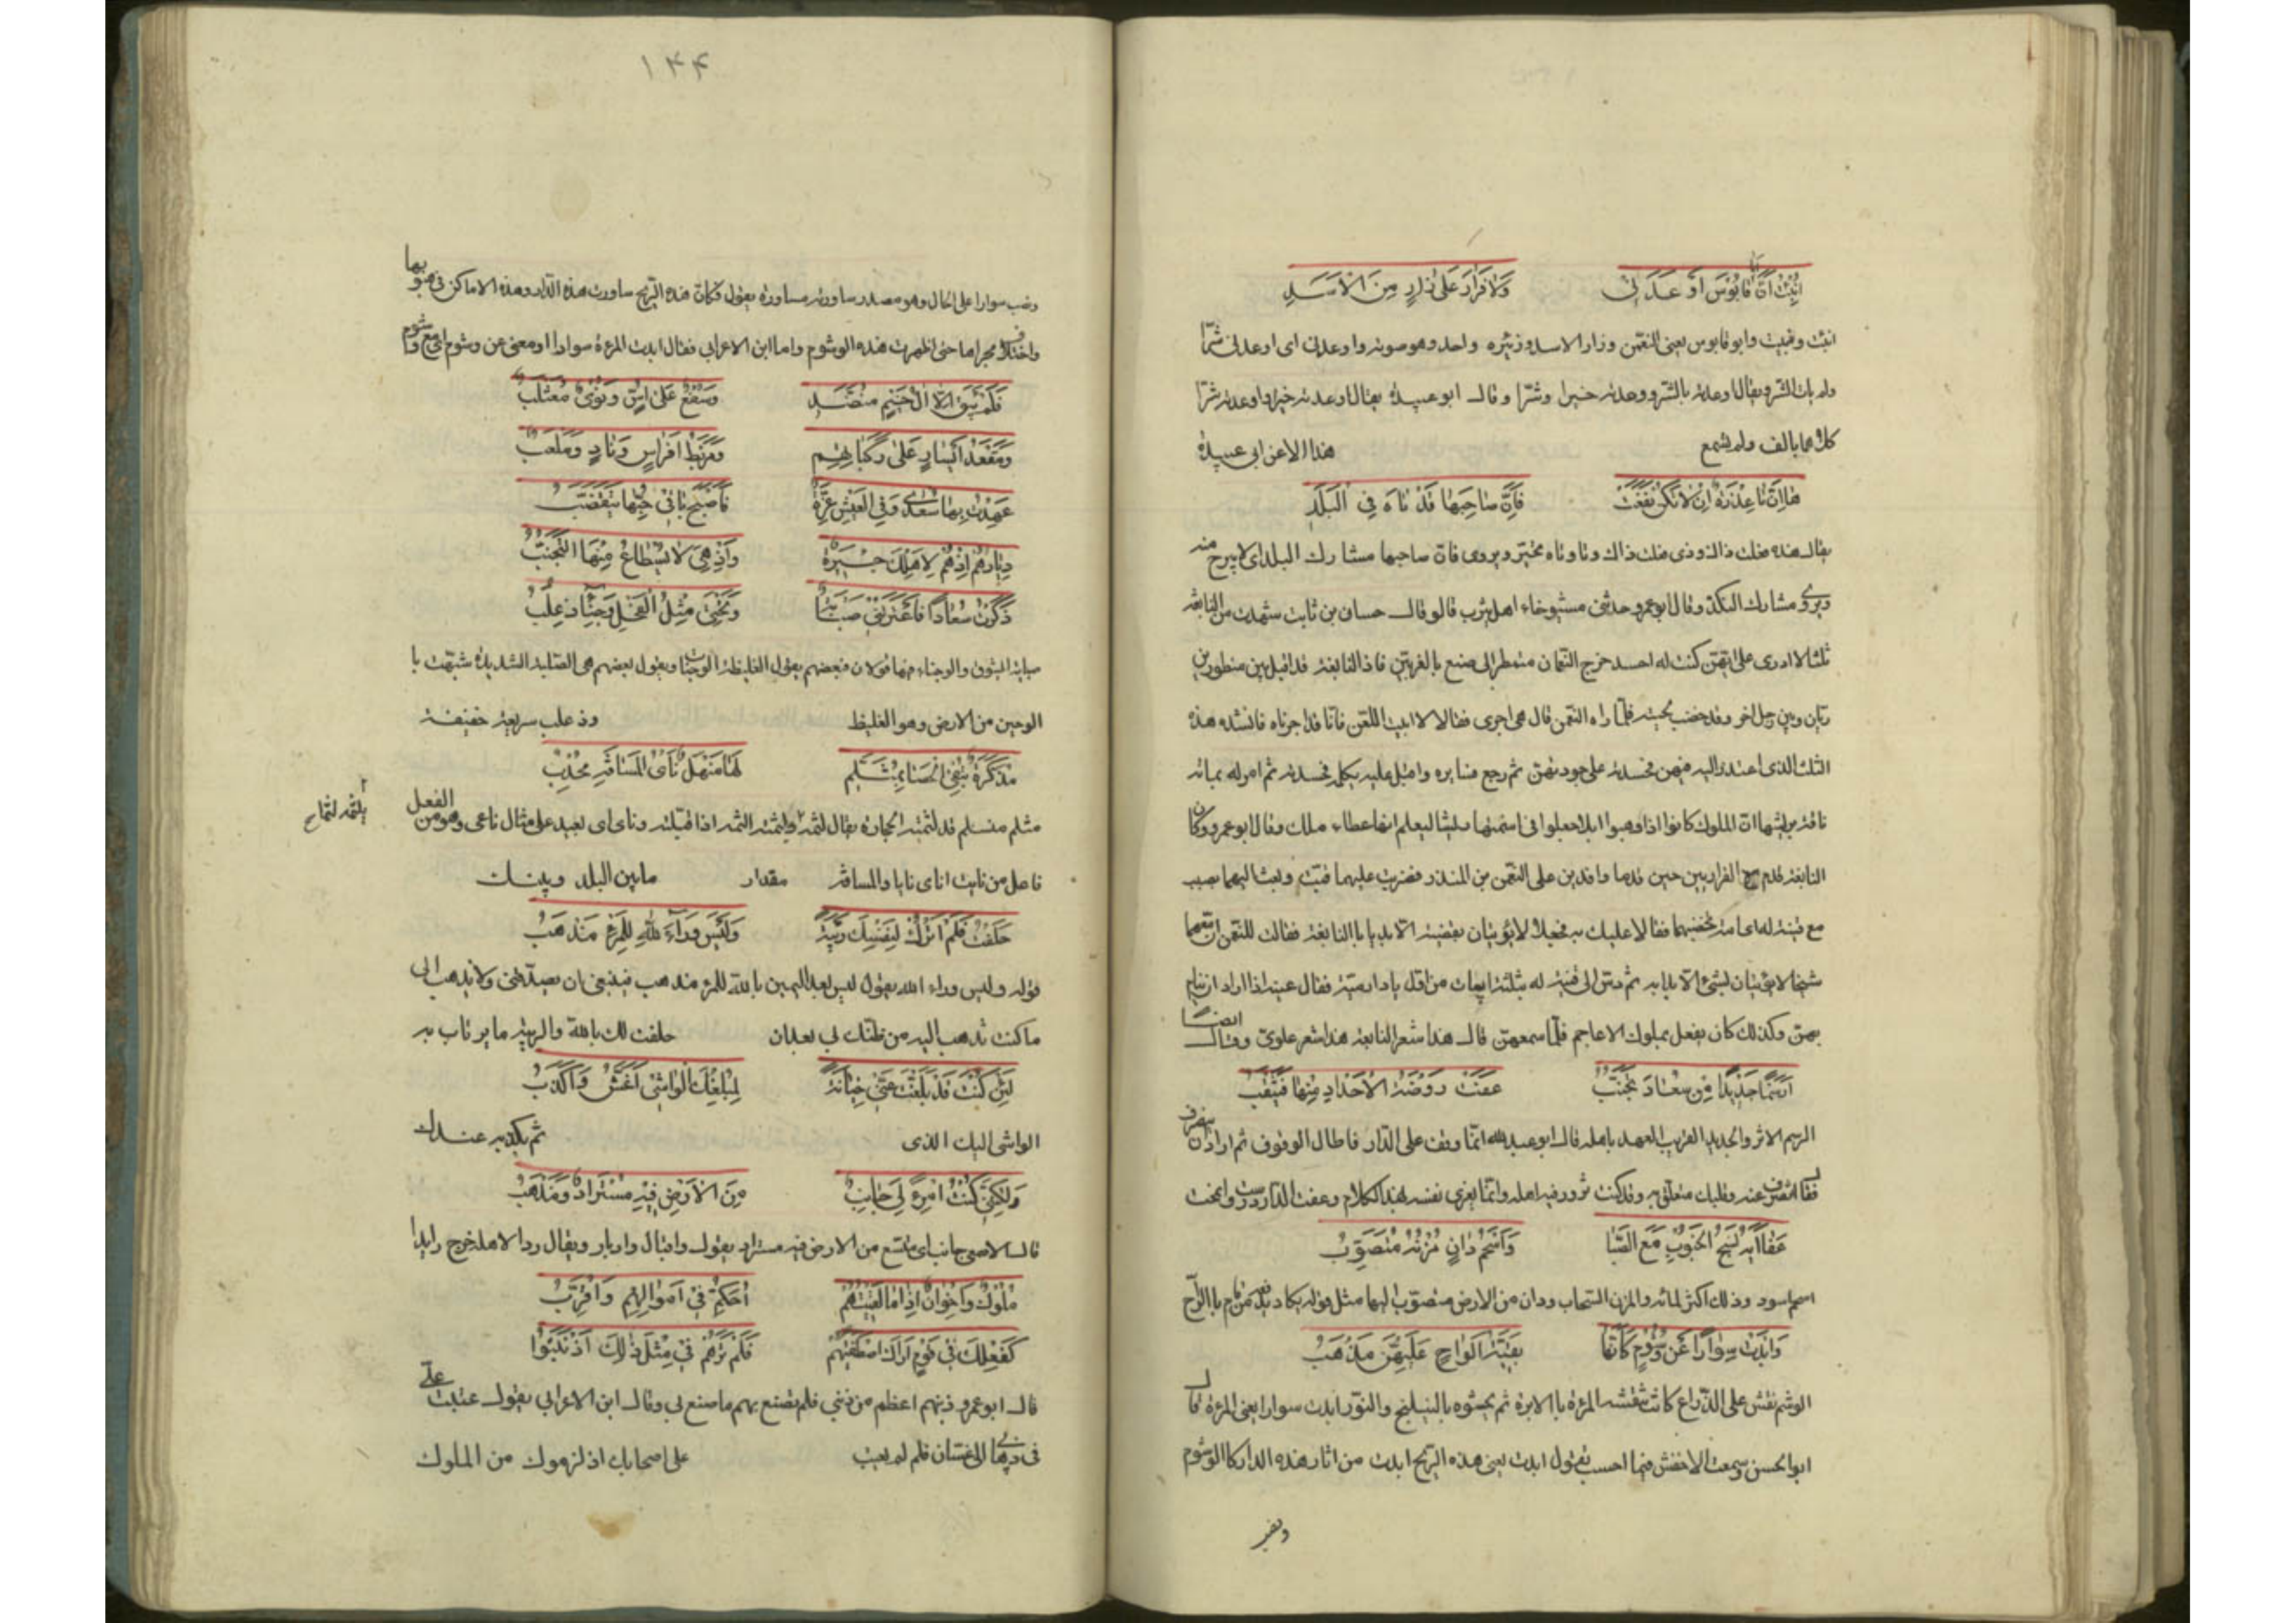 انبئت ان ابا قابوس اوعدنى ولا قرار على زار من الاسد
انبئت ونبيت وابو قابوس يعنى النعمن وزار الاسد وزئيره واحد وهو صوته واوعدنى اى اوعدنى شرّا
ولم يات الشر ويقال اوعدته بالشر ووعدته خيرا وشرّا وقال ابو عبيدة يقال اوعدته خيرا واوعدته شرّا
كلاهما بالف ولم يسمع هذا الا عن ابى عبيدة
ها ان تا عذرة ان لا تكن نفعت فان صاحبها قد تاه فى البلد
يقال هذه وتا وتاه تحير ويروى فان صاحبها مشارك البلد اى لا يبرح منه
ويروى مشارك النكد وقال ابو عمرو حدثنى اهل يثرب قالو قال حسان بن ثابت من النابغة
ثلثا لا ادرى على ايتهن كنت له احسد خرج النعمان الى صنع بالغريين فاذا النابغة قد اقبل بين منظور بن
زبان وبين رجل اخر وقد خضب لحيته فلما راه النعمن قال هى احرى فقالا لا ابيت اللعن فانا قد اجرناه فانشده هذه
ناقة بريشها ان الملوك كانوا اذا وهبوا ابلا جعلوا فى اسنمتها ليعلم انها عطاء ملك وقال ابو عمرو وكان
النابغة قدم مع الفزاريين حين قدما وافدين على النعمن بن المنذر فضربت عليهما قبة وبعث اليهما بطيب
شيخا لا يؤتيان بشئ الا بدا به ثم دس الى قينة له بثلثة ابيات من اول يا دار مية فقال غنيه اذا اراد ان ينام
بهن وكذلك كان يفعل بملوك الاعاجم فلما سمعهن قال هذا شعر النابغة هذا شعر علوى وقال ايضا
ارسما جديدا من سعاد تجنب عفت روضة الاجداد منها فيثقب
الرسم الاثر والجديد القريب العهد باهله قال ابو عبد الله انما وقف على الدار فاطال الوقوف ثم اراد ان ينصرف
فقال اتنصرف عنه وقلبك متعلق به وقد كنت تزور فيه اهله وانما يعزى نفسه بهذا الكلام وعفت الدار درست وامحت
عفا آيه نسج الجنوب مع الصبا واسحم دان مزنه متصوب
اسحم اسود وذلك اكثر لمائه والمزن السحاب ودان من الارض متصوب اليها مثل قوله يكاد يدفعه من قام بالراح
وابدت سوارا عن وشوم كانها بقية الواح عليهن مذهب
الوشم نقش على الذراع كانت تنقشه المرءة بالابرة ثم يحشوه بالنيلنج والنور ابدت سوارا يعنى المرءة قال
ابو الحسن وسمعت الاخفش فيما احسب يقول ابدت يعنى هذه الريح ابدت من اثار هذه الدار كالوشوم
ونصب
١٤٤
ونصب سوارا على الحال وهو مصدر ساورته مساورة يقول فكان هذه الريح ساورت هذه الدار وهذه الاماكن فى هبوبها
واختلاف مجراها حتى اظهرت هذه الوشوم واما ابن الاعرابى فقال ابدت المرءة سوارا ومعنى عن وشوم اى مع وشوم
فلم يبق الا آل خيم منضد وسفع على اس ونوى معثلب
ومقعد ايسار على ركباتهم ومربط افراس وناد وملعب
عهدت بها سعدى وفى العيش غرة فاصبح باقى حبها يتقضب
ديارهم اذ هم لاهلك جيرة واذ هى لا يسطاع منها التجنب
ذكرت سعادا فاعترتنى صبابة وتحتى مثل الفحل وجناء ذعلب
صبابة الشوق والوجناء فيها قولان فبعضهم يقول الغليظة الوجنات ويقول بعضهم هى الصلبة الشديدة شبهت با
الوجين من الارض وهو الغليظ وذعلب سريعة خفيفة
مذكرة تنفى الحصا بمثلم لها منهل ناى المسافة مجذب
مثلم متثلم قد لثمته الحجارة يقال لثمه ولثمته الثمه اذا قبلته وناى اى بعيد على مثال ناعى وهو من الفعل
فاعل من نايت اناى نايا والمسافة مقدار مابين البلد وبينك
حلفت فلم اترك لنفسك ريبة وليس وراء الله للمرء مذهب
قوله وليس وراء الله يقول ليس بعد اليمين بالله للمرء مذهب فينبغى ان تصدقنى ولا تذهب الى
ما كنت تذهب اليه من ظنك بى بعد ان حلفت لك بالله والريبة ما يرتاب به
لئن كنت قد بلغت عنى خيانة لمبلغك الواشى اغش واكذب
الواشى اليك الذى ثم يكذبه عندك
ولكنى كنت امرء لى جانب من الارض فيه مستراد ومذهب
قال الاصمعى جانب اى متسع من الارض فيه مستراد يقول واقبال وادبار ويقال رد لاهلك خرج رايدا
ملوك واخوان اذا ما لقيتهم احكم فى اموالهم واقرب
كفعلك فى قوم اراك اصطفيتهم فلم ترهم فى مثل ذلك اذنبوا
قال ابو عمرو ذنبهم اعظم من ذنبى فلم تصنع بهم ما صنع بى وقال ابن الاعرابى يقول عتبت على
فى ذهابى الى غسان فلم لم تعتب على اصحابك اذ لزموك من الملوك